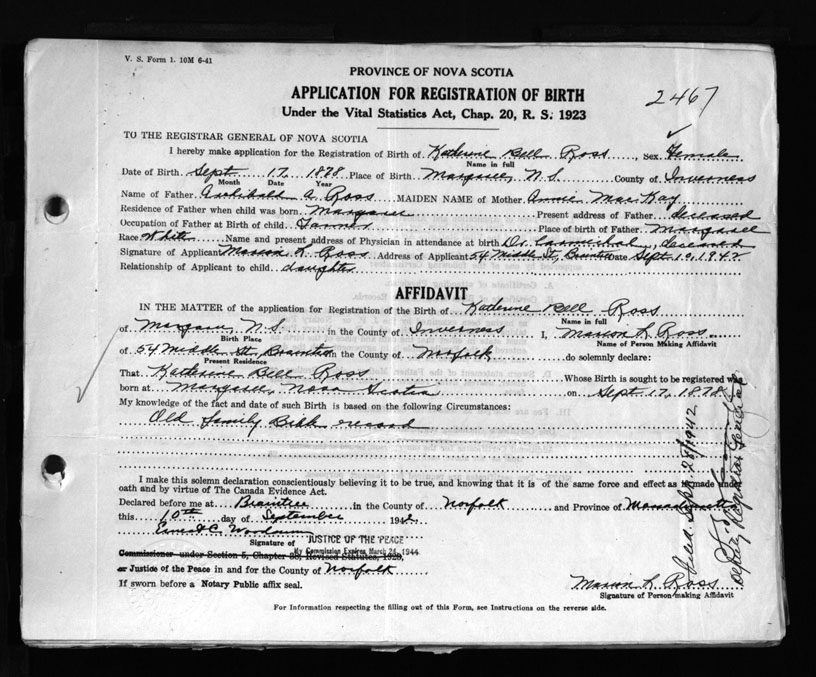 V. S. Form 1. 10M 6-41
PROVINCE OF NOVA SCOTIA
APPLICATION FOR REGISTRATION OF BIRTH
2467
Under the Vital Statistics Act, Chap. 20, R. S. 1923
TO THE REGISTRAR GENERAL OF NOVA SCOTIA
I hereby make application for the Registration of Birth of Katherine Bell Ross, Sex Female
Name in full
Date of Birth Sept 17 1878 Place of Birth Margaree, N.S. County of Inverness
Month Date Year
Name of Father Archibald A. Ross MAIDEN NAME of Mother Annie MacKay
Residence of Father when child was born Margaree Present address of Father deceased
Occupation of Father at Birth of child Farmer Place of birth of Father Margaree
Race White Name and present address of Physician in attendance at birth Dr. Carmichael, deceased
Signature of Applicant Marion R. Ross Address of Applicant 54 Middle St, Braintree Date Sept. 10, 1942
Relationship of Applicant to child daughter
AFFIDAVIT
IN THE MATTER of the application for Registration of the Birth of Katherine Bell Ross
Name in full
of Margaree N.S. in the County of Inverness I, Marion R. Ross
Birth Place Name of Person Making Affidavit
of 54 Middle St., Braintree in the County of Norfolk do solemnly declare:
Present Residence
That Katherine Bell Ross Whose Birth is sought to be registered was
born at Margaree, Nova Scotia on Sept. 17, 1878
My knowledge of the fact and date of such Birth is based on the following Circumstances:
Old family Bible record
I make this solemn declaration conscientiously believing it to be true, and knowing that it is of the same force and effect as if made under
oath and by virtue of The Canada Evidence Act.
Declared before me at Braintree in the County of Norfolk and Province of Massachusetts
this 10th day of September 1942
Ernest C. Woodsum
Signature of JUSTICE OF THE PEACE
My Commission Expires March 24, 1944
Commissioner under Section 5, Chapter 38, Revised Statutes, 1923,
or Justice of the Peace in and for the County of Norfolk
If sworn before a Notary Public affix seal.
Marion R. Ross
Signature of Person making Affidavit
For Information respecting the filling out of this Form, see Instructions on the reverse side.
Filed Sept. 28/1942
Deputy Registrar General